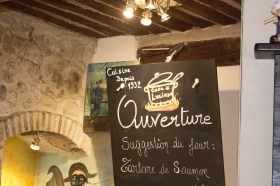 Cuisine
Depuis
1992
Ouverture
Suggestion du Jour:
Tartare de Saumon